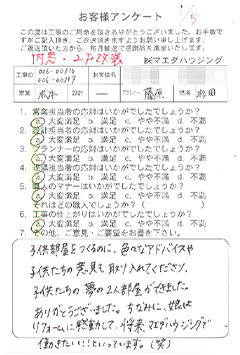 お客様アンケート
この度は工事のご用命を頂きありがとうございました。お手数で
すがご記入頂き、ご返送頂きますようお願い申し上げます。
ご返送頂いた方から、毎月抽選で感謝品を進呈いたします。
内窓・2F改装
㈱マエダハウジング
工事ID
お客様名
営業
設計
プランナー 藤原
現場 杉田
1. 営業担当者の応対はいかがでしたでしょうか?
a. 大満足 b. 満足 c. やや不満 d. 不満
2. 設計担当者の応対はいかがでしたでしょうか?
a. 大満足 b. 満足 c. やや不満 d. 不満
3. プランナーの応対はいかがでしたでしょうか?
a. 大満足 b. 満足 c. やや不満 d. 不満
4. 現場担当者の応対はいかがでしたでしょうか?
a. 大満足 b. 満足 c. やや不満 d. 不満
5. 職人のマナーはいかがでしたでしょうか?
a. 大満足 b. 満足 c. やや不満 d. 不満
それはどの職人でしょうか?( )
6. 工事の仕上がりはいかがでしたでしょうか?
a. 大満足 b. 満足 c. やや不満 d. 不満
7. その他、ご意見・ご要望をお書き下さい。
子供部屋をつくるのに、色々なアドバイスや
子供たちの意見も取り入れてくださり、
子供たちの夢の2人部屋ができました。
ありがとうございました。ちなみに、娘は
リフォームに感動して、将来、マエダハウジングで
働きたい!!といっています。(笑)